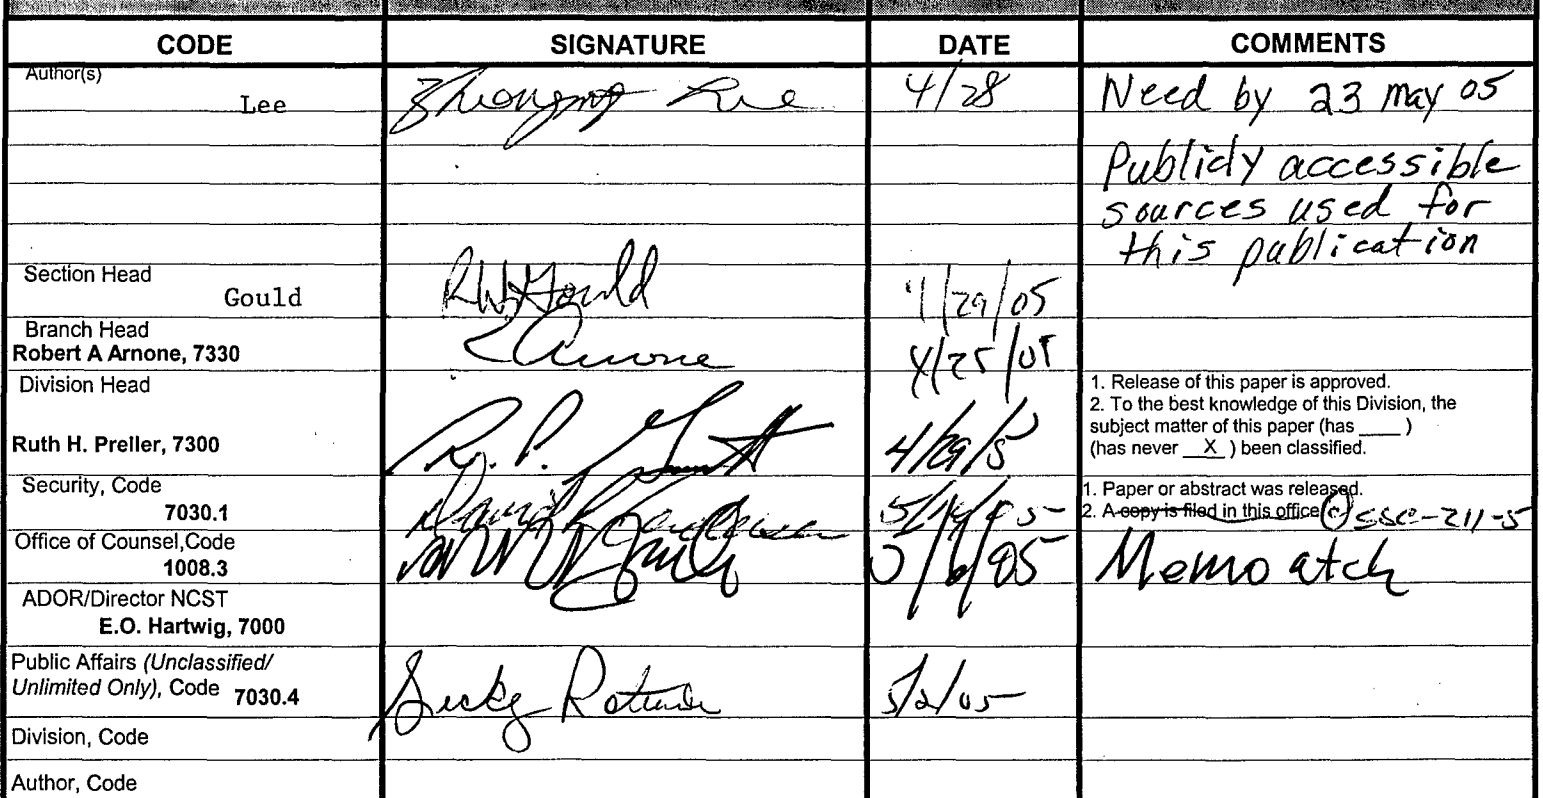 CODE SIGNATURE DATE COMMENTS
Author(s)
Lee Lee 4/28 Need by 23 may 05
Publicly accessible
sources used for
this publication
Section Head
Gould RW Gould 4/29/05
Branch Head
Robert A Arnone, 7330 Arnone 4/25/05
Division Head
1. Release of this paper is approved.
2. To the best knowledge of this Division, the
subject matter of this paper (has ____ )
Ruth H. Preller, 7300 4/29/5
(has never X ) been classified.
Security, Code
7030.1 David
1. Paper or abstract was released.
2. A copy is filed in this office SSC-211-5
Office of Counsel,Code
1008.3 Memo atch
ADOR/Director NCST
E.O. Hartwig, 7000
Public Affairs (Unclassified/
Unlimited Only), Code 7030.4 5/2/05
Division, Code
Author, Code